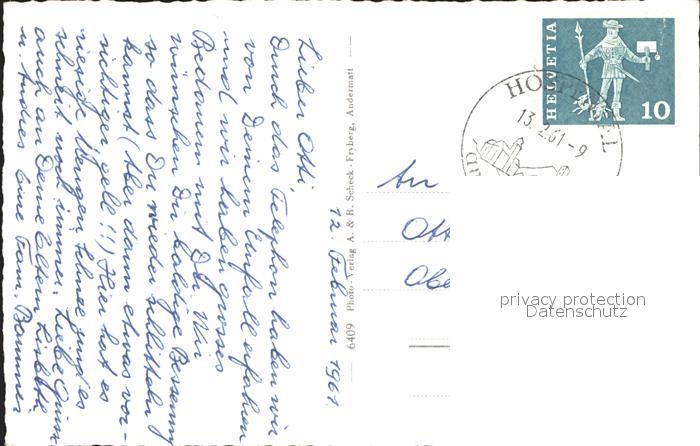 12. Februar 1961.
Lieber Otti,
Durch das Telephon haben wir
von Deinem Unfall erfahren
und wir haben grosses
Bedauern mit Dir. Wir
wünschen Dir baldige Besserung
so dass Du wieder schlitteln
kannst (Aber dann etwas vor-
sichtiger gell!!) Hier hat es
riesige Mengen Schnee und es
schneit noch immer. Liebe Grüsse
auch an Deine Eltern
u. Andres Eure Fam.
6409 Photo-Verlag A. & R. Scheck-Fryberg, Andermatt
HELVETIA
10
13.2.61-9
An
Ott
Obe
privacy protection
Datenschutz